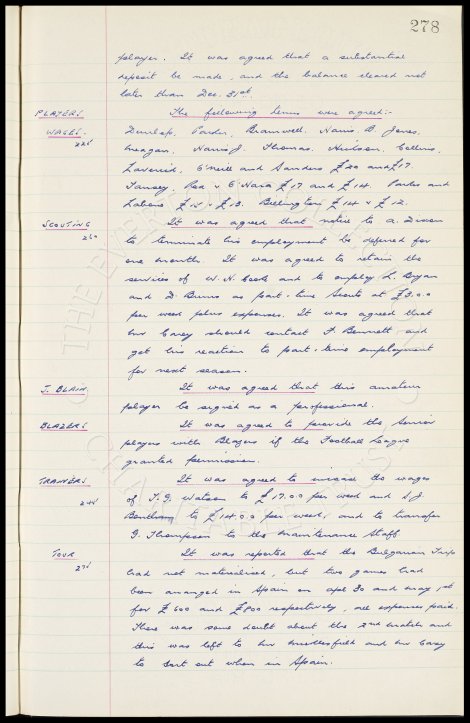 278
player. It was agreed that a substantial
deposit be made, and the balance cleared not
later than Dec. 31st.
PLAYERS The following terms were agreed:-
WAGES. Dunlop, Parker, Bramwell, Harris B. Jones,
226 Meagan, Harris J. Thomas, Collins,
Laverick, O'Neill and Sanders £20 and £17
Tansey, Rea & O'Hara £17 and £14. and
Labone £15 & £13. Billington £14 & £12.
SCOUTING It was agreed that notice to a. Dixon
260 to terminate his employment be deferred for
one month. It was agreed to retain the
services of W.H. Cooke and to employ L. Bryan
and D. Burns as part-time Scouts at £3.0.0
per week plus expenses. It was agreed that
Mr Carey should contact F. Bennett and
get his reaction to part-time employment
for next season.
J. BLAIN. It was agreed that this amateur
player be signed as a professional.
BLAZERS It was agreed to provide the Senior
players with Blazers if the Football League
granted permission.
TRAINERS It was agreed to increase the wages
244 of T.G. Watson to £17.00 per week and S.J.
Bentham to £14.00 per week, and to transfer
G. Thompson to the maintenance Staff
TOUR It was reported that the Bulgarian Trip
276 had not materialised, but two games had
been arranged in Spain on apl 30 and may 1st
for £600 and £800 respectively, all expenses paid.
There was some doubt about the 2nd match and
this was left to Mr Micklesfield and Mr Carey
to sort out when in Spain.